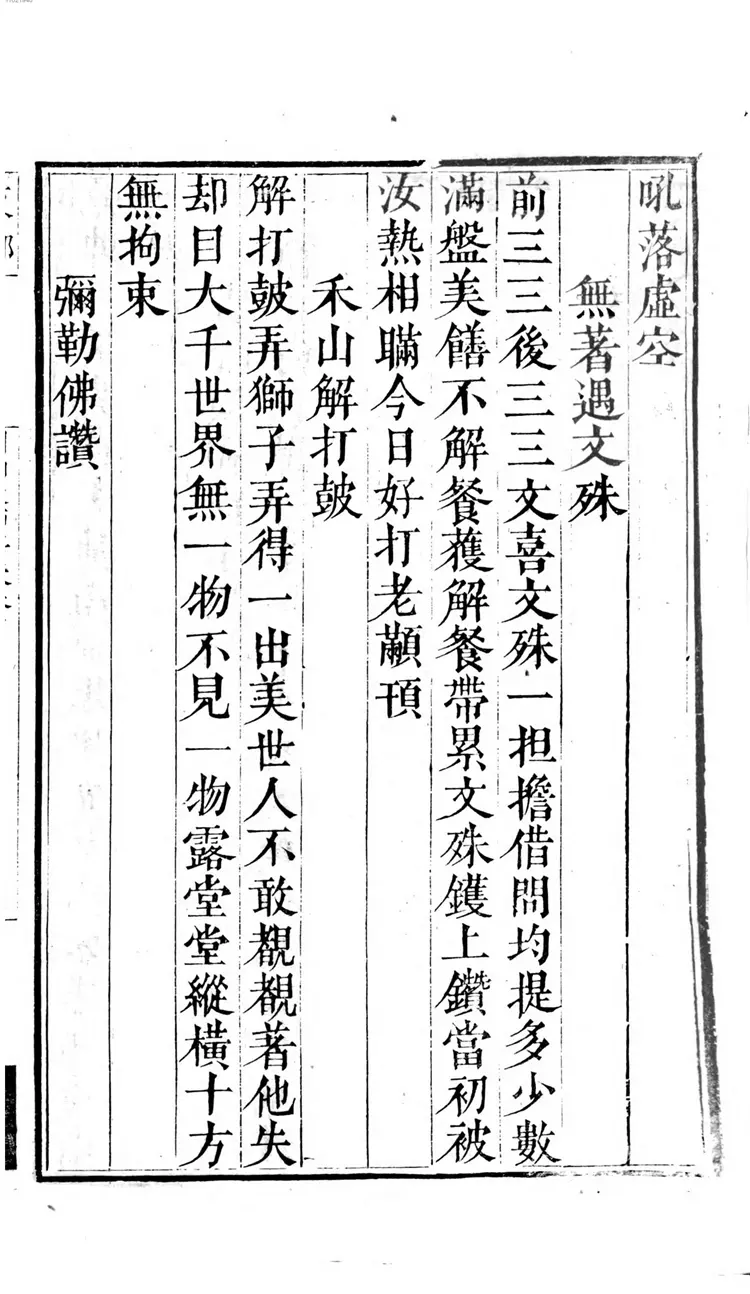 吼落虛空
無著遇文殊
前三三後三三文喜文殊一担擔借問均提多少數
滿盤美饍不解餐蒦解餐帶累文殊鑊上鑽當初被
汝熱相瞞今日好打老顢頇
禾山解打皷
解打皷弄獅子弄得一出美世人不敢覩覩著他失
却目大千世界無一物不見一物露堂堂縱橫十方
無拘束
彌勒佛讚